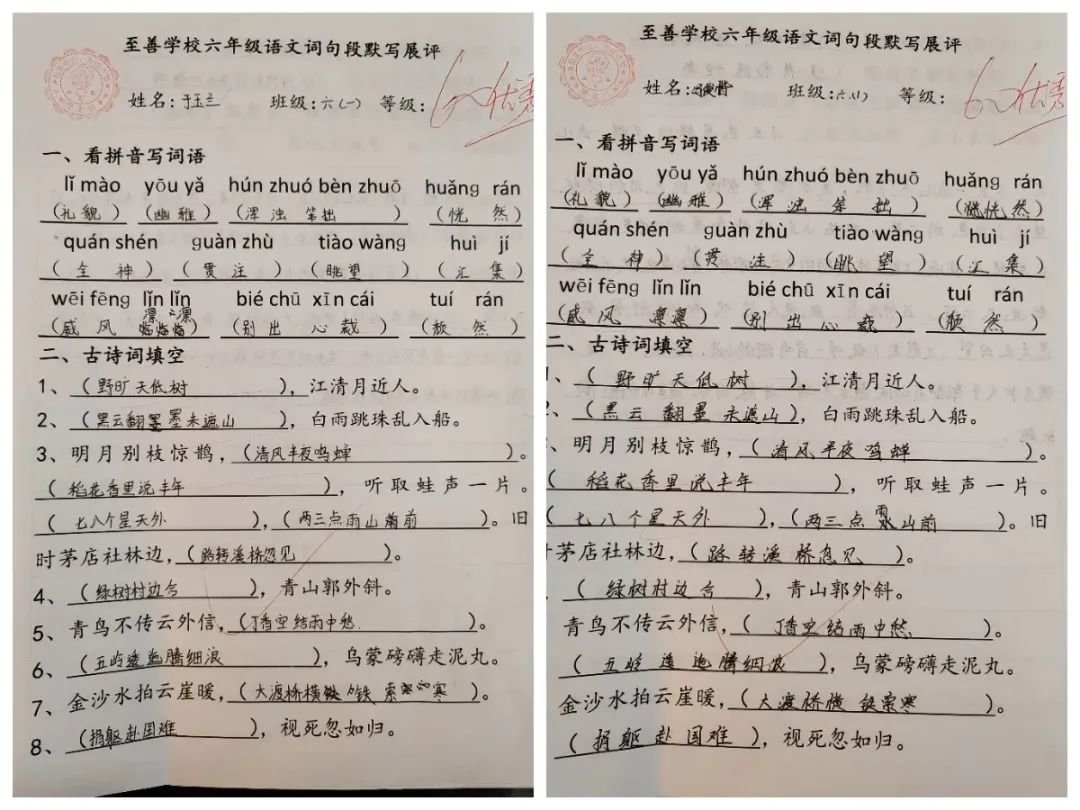 至善学校六年级语文词句段默写展评
姓名:于玉兰 班级:六(一) 等级: 优秀
一、看拼音写词语
lǐ mào yōu yǎ hún zhuó bèn zhuō huǎng rán
(礼貌)(幽雅)(浑浊 笨拙)(恍然)
quán shén guàn zhù tiào wàng huì jí
(全神)(贯注)(眺望)(汇集)
wēi fēng lǐn lǐn bié chū xīn cái tuí rán
(威风凛凛)(别出心裁)(颓然)
二、古诗词填空
1、(野旷天低树),江清月近人。
2、(黑云翻墨未遮山),白雨跳珠乱入船。
3、明月别枝惊鹊,(清风半夜鸣蝉)。
(稻花香里说丰年),听取蛙声一片。
(七八个星天外),(两三点雨山前)。旧
时茅店社林边,(路转溪桥忽见)。
4、(绿树村边合),青山郭外斜。
5、青鸟不传云外信,(丁香空结雨中愁)。
6、(五岭逶迤腾细浪),乌蒙磅礴走泥丸。
7、金沙水拍云崖暖,(大渡桥横铁索寒)。
8、(捐躯赴国难),视死忽如归。
至善学校六年级语文词句段默写展评
姓名: 班级:六(1) 等级: 优秀
一、看拼音写词语
lǐ mào yōu yǎ hún zhuó bèn zhuō huǎng rán
(礼貌)(幽雅)(浑浊笨拙)(恍然)
quán shén guàn zhù tiào wàng huì jí
(全神)(贯注)(眺望)(汇集)
wēi fēng lǐn lǐn bié chū xīn cái tuí rán
(威风凛凛)(别出心裁)(颓然)
二、古诗词填空
、(野旷天低树),江清月近人。
2、(黑云翻墨未遮山),白雨跳珠乱入船。
、明月别枝惊鹊,(清风半夜鸣蝉)。
(稻花香里说丰年),听取蛙声一片。
(七八个星天外),(两三点雨山前)。旧
时茅店社林边,(路转溪桥忽见)。
(绿树村边合),青山郭外斜。
青鸟不传云外信,(丁香空结雨中愁)。
(五岭逶迤腾细浪),乌蒙磅礴走泥丸。
金沙水拍云崖暖,(大渡桥横铁索寒)。
(捐躯赴国难),视死忽如归。